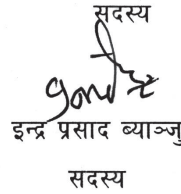 सदस्य
इन्द्र प्रसाद ब्याञ्जु
सदस्य